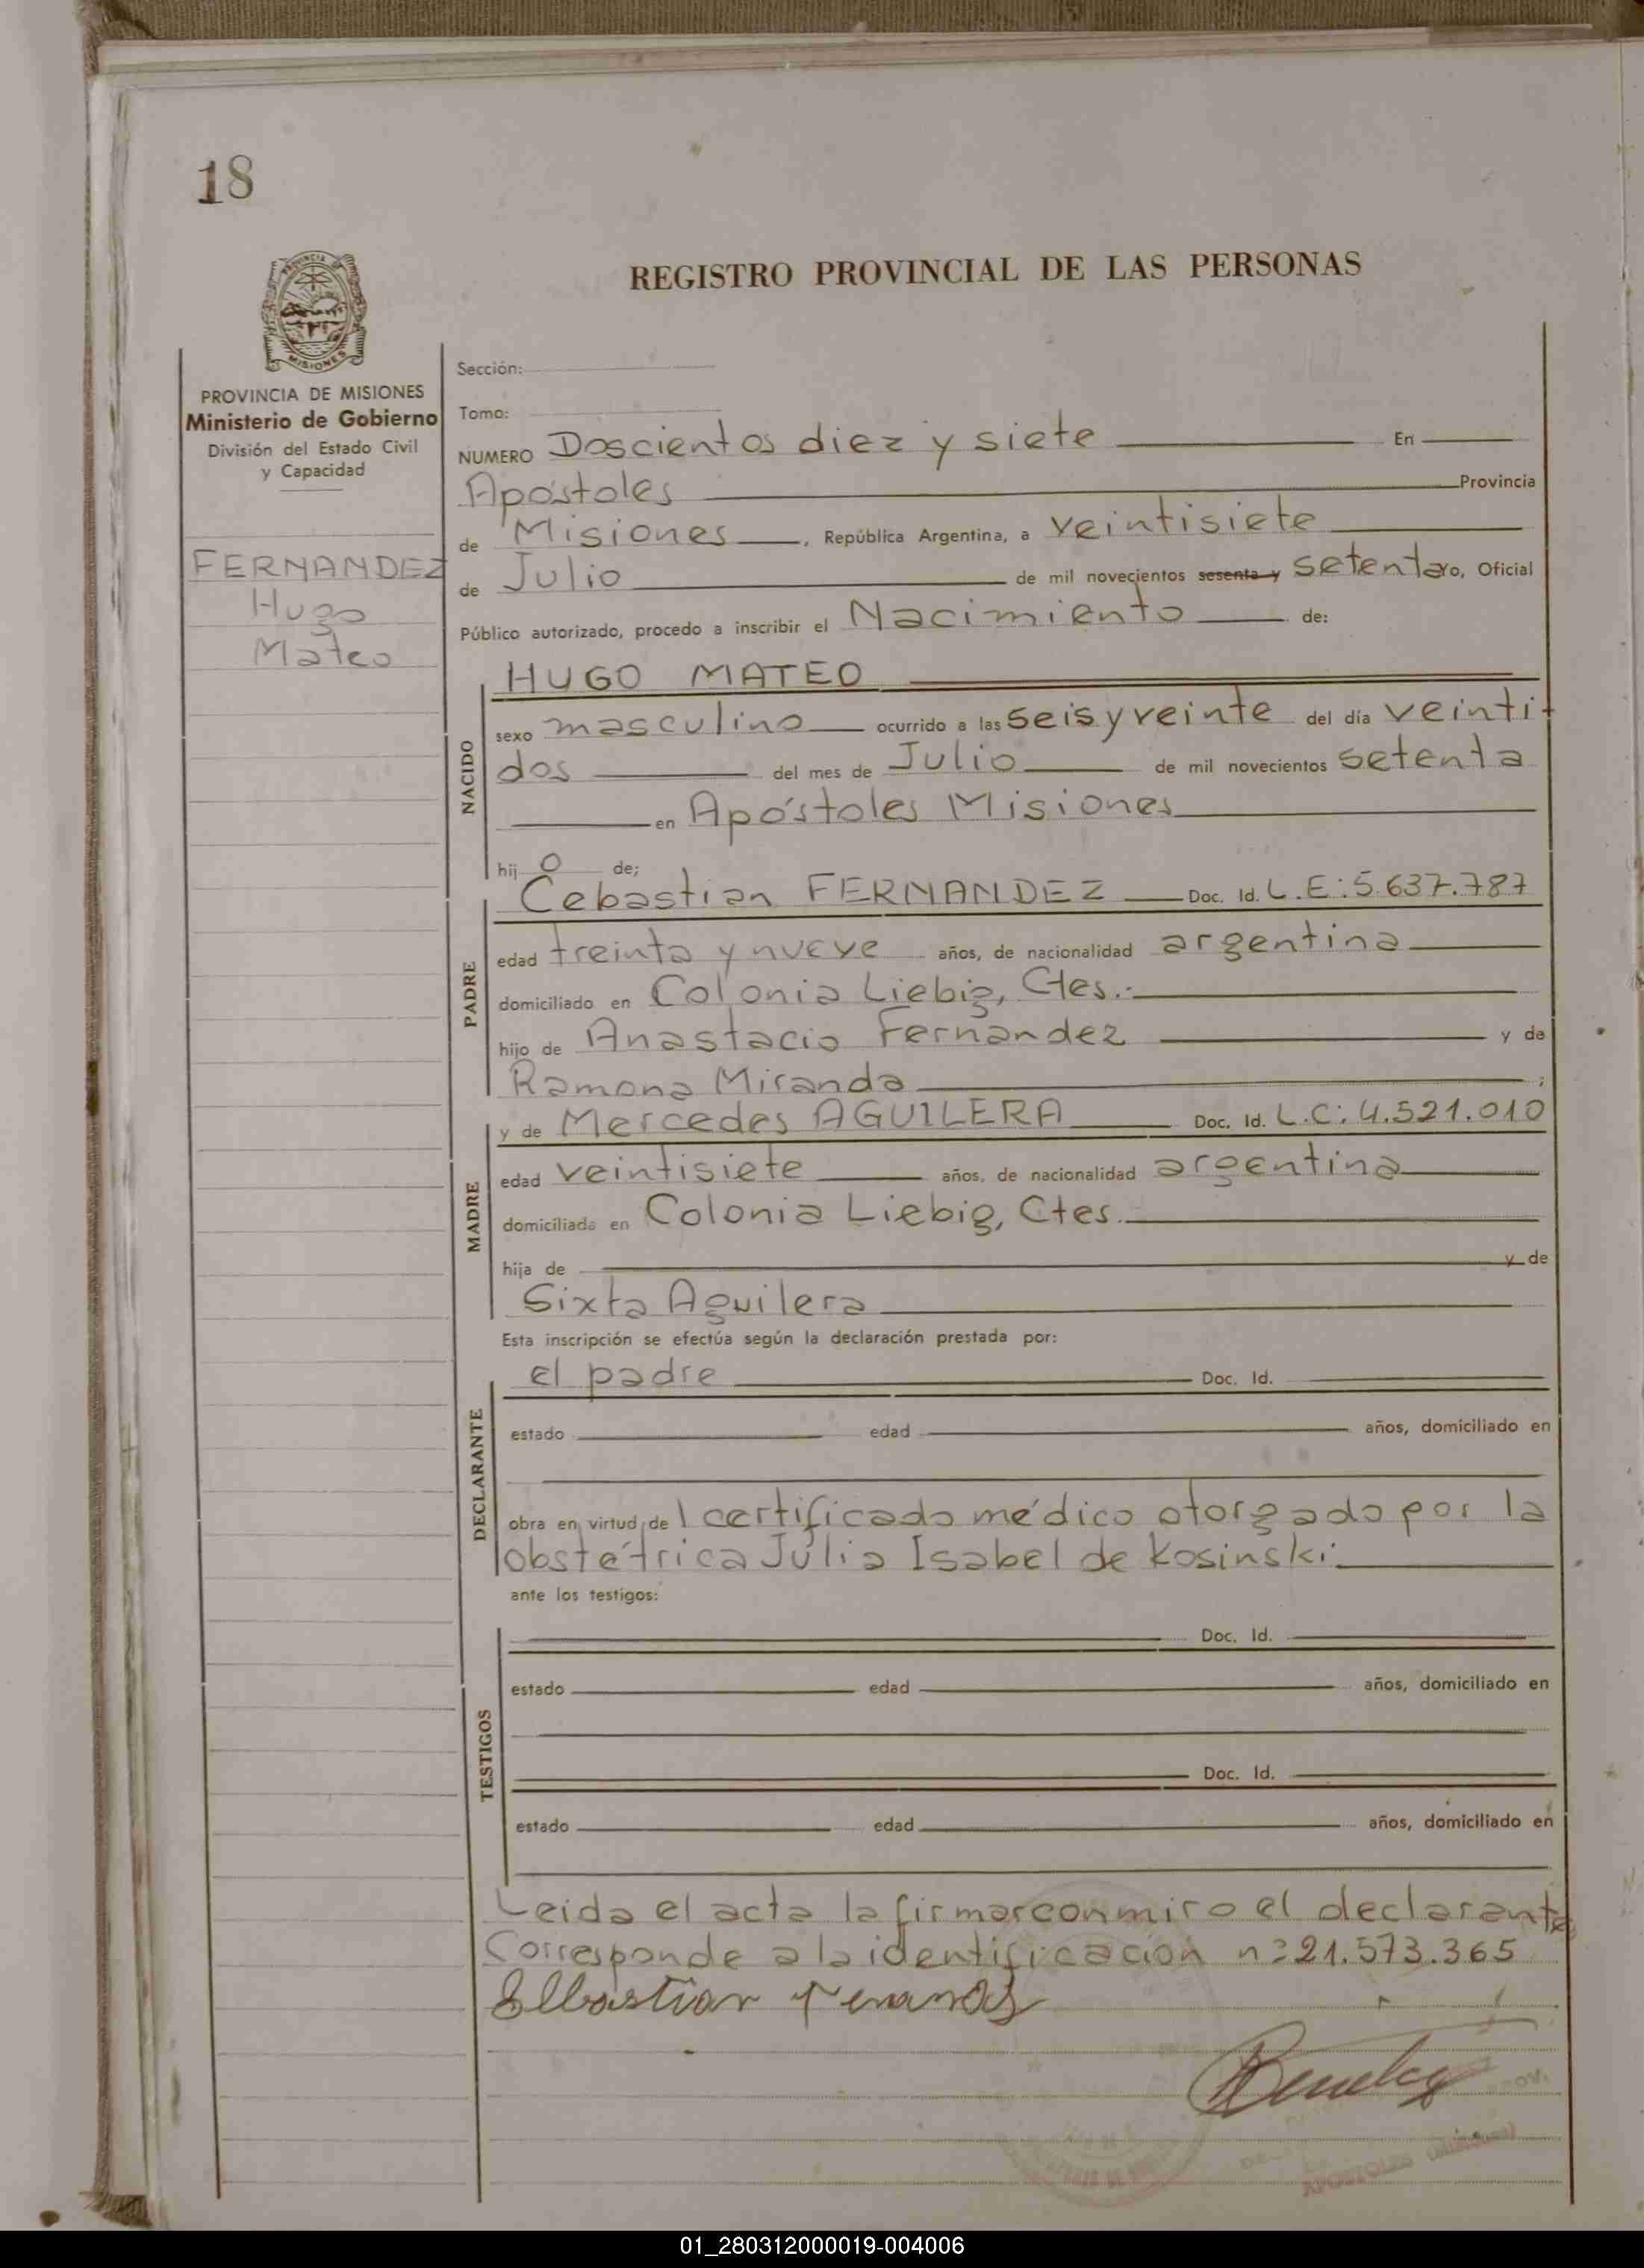 18
REGISTRO PROVINCIAL DE LAS PERSONAS
MISIONES
PROVINCIA DE MISIONES
Ministerio de Gobierno
División del Estado Civil
y Capacidad
FERNANDEZ
Hugo
Mateo
Sección:
Tomo:
NUMERO Doscientos diez y siete En
Apóstoles Provincia
de Misiones, República Argentina, a veintisiete
de Julio de mil novecientos sesenta y setenta yo, Oficial
Público autorizado, procedo a inscribir el Nacimiento de:
NACIDO
HUGO MATEO
sexo masculino ocurrido a las seis y veinte del día veinti-
dos del mes de Julio de mil novecientos setenta
en Apóstoles Misiones
hij o de;
PADRE
Cebastian FERNANDEZ Doc. Id. L.E:5.637.787
edad treinta y nueve años, de nacionalidad argentina
domiciliado en Colonia Liebig, Ctes.-
hijo de Anastacio Fernandez y de
Ramona Miranda ;
MADRE
y de Mercedes AGUILERA Doc. Id. L.C:4.521.010
edad veintisiete años, de nacionalidad argentina
domiciliada en Colonia Liebig, Ctes.
hija de y de
Sixta Aguilera
Esta inscripción se efectúa según la declaración prestada por:
DECLARANTE
el padre Doc. Id.
estado edad años, domiciliado en
obra en virtud de l certificado médico otorgado por la
obstétrica Julia Isabel de Kosinski.
ante los testigos:
TESTIGOS
Doc. Id.
estado edad años, domiciliado en
Doc. Id.
estado edad años, domiciliado en
Leida el acta la firmarconmiro el declarante
Corresponde a la identificación nº21.573.365
APOSTOLES (Misiones)
01_280312000019-004006